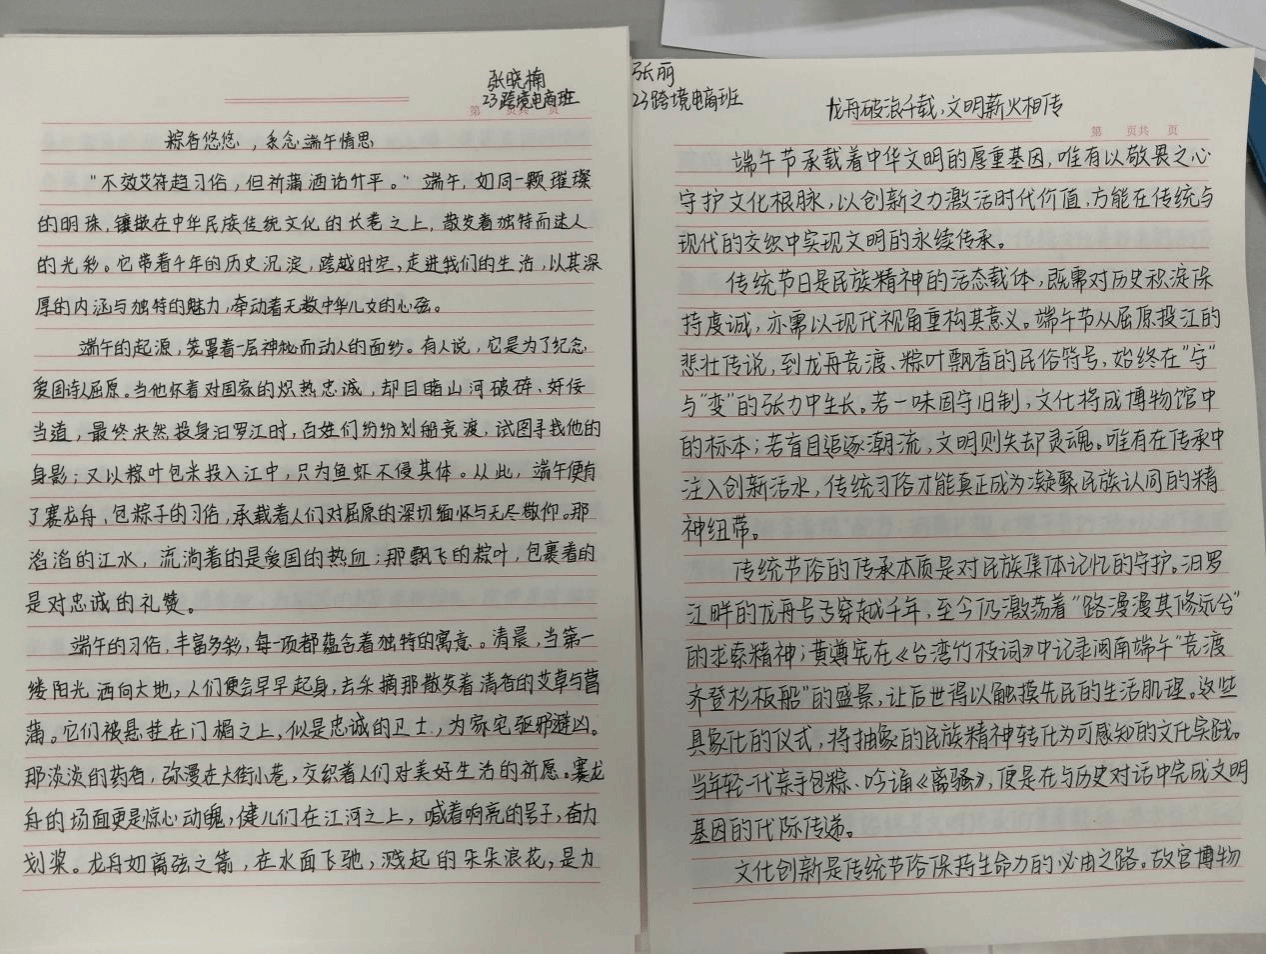 张晓楠
23跨境电商班
第 页共 页
粽香悠悠，系念端午情思
“不效艾符趋习俗，但祈蒲酒话升平。”端午，如同一颗璀璨
的明珠，镶嵌在中华民族传统文化的长卷之上，散发着独特而迷人
的光彩。它带着千年的历史沉淀，跨越时空，走进我们的生活，以其深
厚的内涵与独特的魅力，牵动着无数中华儿女的心弦。
端午的起源，笼罩着一层神秘而动人的面纱。有人说，它是为了纪念
爱国诗人屈原。当他怀着对国家的炽热忠诚，却目睹山河破碎、奸佞
当道，最终决然投身汩罗江时，百姓们纷纷划船竞渡，试图寻找他的
身影；又以粽叶包米投入江中，只为鱼虾不侵其体。从此，端午便有
了赛龙舟、包粽子的习俗，承载着人们对屈原的深切缅怀与无尽敬仰。那
滔滔的江水，流淌着的是爱国的热血；那飘飞的粽叶，包裹着的
是对忠诚的礼赞。
端午的习俗，丰富多彩，每一项都蕴含着独特的寓意。清晨，当第一
缕阳光洒向大地，人们便会早早起身，去采摘那散发着清香的艾草与菖
蒲。它们被悬挂在门楣之上，似是忠诚的卫士，为家宅驱邪避凶。
那淡淡的药香，弥漫在大街小巷，交织着人们对美好生活的祈愿。赛龙
舟的场面更是惊心动魄，健儿们在江河之上，喊着响亮的号子，奋力
划桨。龙舟如离弦之箭，在水面飞驰，溅起的朵朵浪花，是力
张丽
23跨境电商班
龙舟破浪千载，文明薪火相传
第 页共 页
端午节承载着中华文明的厚重基因，唯有以敬畏之心
守护文化根脉，以创新之力激活时代价值，方能在传统与
现代的交织中实现文明的永续传承。
传统节日是民族精神的活态载体，既需对历史积淀保
持虔诚，亦需以现代视角重构其意义。端午节从屈原投江的
悲壮传说，到龙舟竞渡、粽叶飘香的民俗符号，始终在“守”
与“变”的张力中生长。若一味固守旧制，文化将成博物馆中
的标本；若盲目追逐潮流，文明则失却灵魂。唯有在传承中
注入创新活水，传统习俗才能真正成为凝聚民族认同的精
神纽带。
传统节俗的传承本质是对民族集体记忆的守护。汨罗
江畔的龙舟号子穿越千年，至今仍激荡着“路漫漫其修远兮”
的求索精神；黄遵宪在《台湾竹枝词》中记录闽南端午“竞渡
齐登杉板船”的盛景，让后世得以触摸先民的生活肌理。这些
具象化的仪式，将抽象的民族精神转化为可感知的文化实践。
当年轻一代亲手包粽、吟诵《离骚》，便是在与历史对话中完成文明
基因的代际传递。
文化创新是传统节俗保持生命力的必由之路。故宫博物